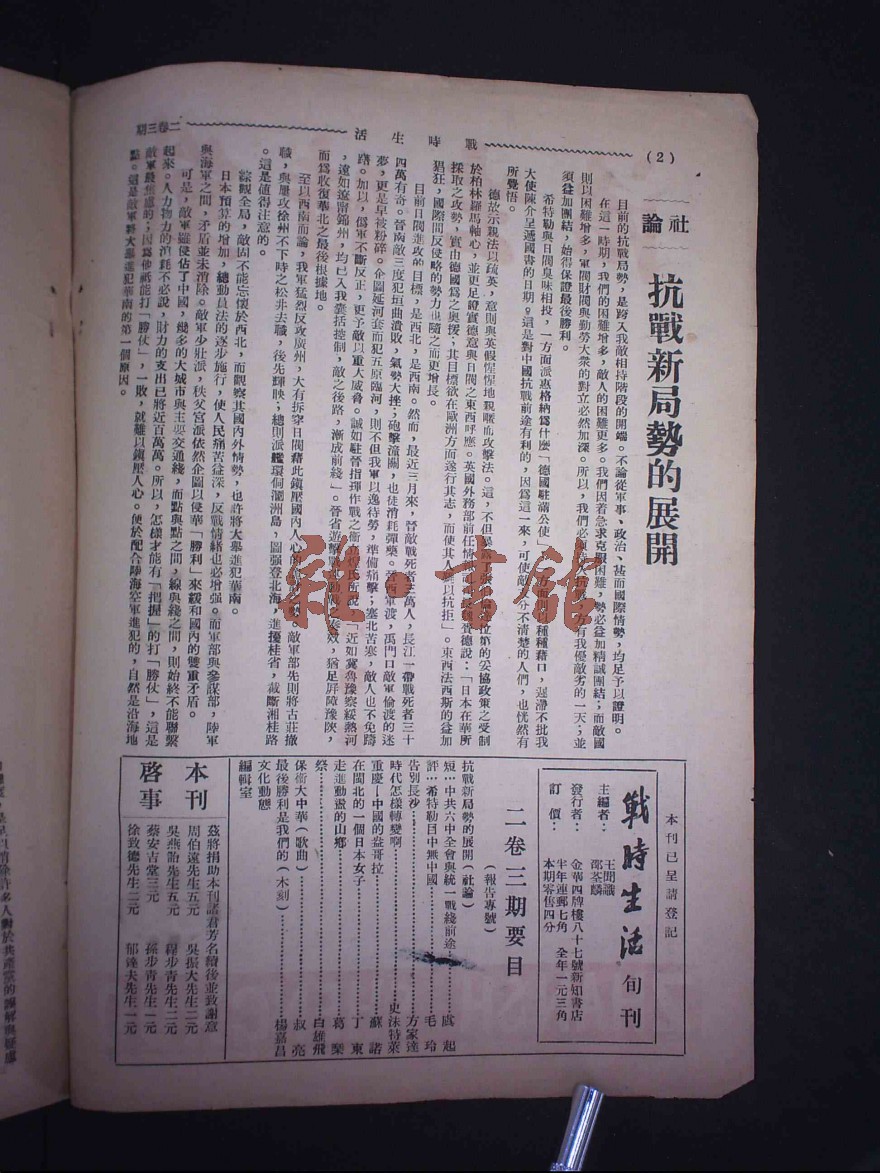 (2)
戰時生活
二卷三期
社論
抗戰新局勢的展開
目前的抗戰局勢，是跨入我敵相持階段的開端。不論從軍事、政治、甚而國際情勢，均足予以證明。
在這一時期，我們的困難增多，敵人的困難更多。我們因着急求克服困難，勢必益加精誠團結；而敵國
則以困難增多，軍閥財閥與勤勞大衆的對立必然加深。所以，我們必須
須益加團結，始得保證最後勝利。
希特勒與日閥臭味相投，一方面派惠格納爲什麽「德國駐滿公使」
大使陳介呈遞國書的日期。這是對中國抗戰前途有利的，因爲這一來，可使敵
所覺悟。
德故示親法以疏英，意則與英假惺惺地親暱而攻擊法。這，不但
於柏林羅馬軸心，並更足證實德意與日閥之東西呼應。英國外務部前任情
採取之攻勢，實由德國爲之奧援；其目標欲在歐洲方面遂行其志，而使其人
猖狂，國際間反侵略的勢力也隨之而更增長。
目前日閥進攻的目標，是西北，是西南。然而，最近三月來，晉敵戰死者三萬人，長江一帶戰死者三十
四萬有奇。晉南敵三度犯垣曲潰敗，氣勢大挫；砲擊潼關，也徒消耗彈藥。晉西軍渡，禹門口敵軍偷渡的迷
夢，更是早被粉碎。企圖延河套而犯五原臨河，則不但我軍以逸待勞，準備痛擊；塞北苦寒，敵人也不免躊
躇。加以，僞軍不斷反正，更予敵以重大威脅。誠如駐晉指揮作戰之衛立煌氏所說：「近如冀魯豫察綏熱河
，遠如遼甯錦州，均已入我囊括控制，敵之後路，漸成前綫」。晉省遊擊戰
而爲收復華北之最後根據地。
至以西南而論，我軍猛烈反攻廣州，大有拆穿日閥藉此鎮壓國內人心的
職，與屢攻徐州不下時之松井去職，後先輝映；總則派艦環伺潿洲島，圖强登北海，進擾桂省，截斷湘桂路
。這是值得注意的。
綜觀全局，敵固不能忘懷於西北，而觀察其國內外情勢，也許將大舉進犯華南。
日本預算的增加，總動員法的逐步施行，使人民痛苦益深，反戰情緒也必增强。而軍部與參謀部，陸軍
與海軍之間，矛盾並未消除。敵軍少壯派，秩父宮派依然企圖以侵華「勝利」來緩和國內的雙重矛盾。
可是，敵軍雖侵佔了中國，幾多的大城市與主要交通綫，而點與點之間，線與綫之間，則始終不能聯繫
起來。人力物力的消耗不必說，財力的支出已將近百萬萬。所以，怎樣才能有「把握」的打「勝仗」，這是
敵軍最焦慮的；因爲他祇能打「勝仗」，一敗，就難以鎮壓人心。便於配合陸海空軍進犯的，自然是沿海地
點。這是敵軍將大舉進犯華南的第一個原因。
本刊已呈請登記
戰時生活 旬刊
主編者：王聞識 邵荃麟
發行者：金華四牌樓八十七號新知書店
訂價：半年連郵七角 全年一元三角
本期零售四分
二卷三期要目
（報告專號）
抗戰新局勢的展開（社論）
短評：中共六中全會與統一戰綫前途……虞起
希特勒目中無中國……毛玲
告別長沙……方家達
時代怎樣轉變啊……史沫特萊
重慶—中國的益哥拉……蘇諾
在閩北的一個日本女子……丁東
走進動盪的山鄉……葛琴
祭……白雄飛
保衛大中華（歌曲）……叔亮
最後勝利是我們的（木刻）……楊嘉昌
文化動態
編輯室
本刊啓事
茲將捐助本刊諸君芳名續後並致謝意
周伯遠先生五元 吳振大先生二元
吳燕詒先生五元 程步青先生二元
蔡安吉堂三元 孫步青先生一元
徐致德先生二元 郁達夫先生一元
雜·書館